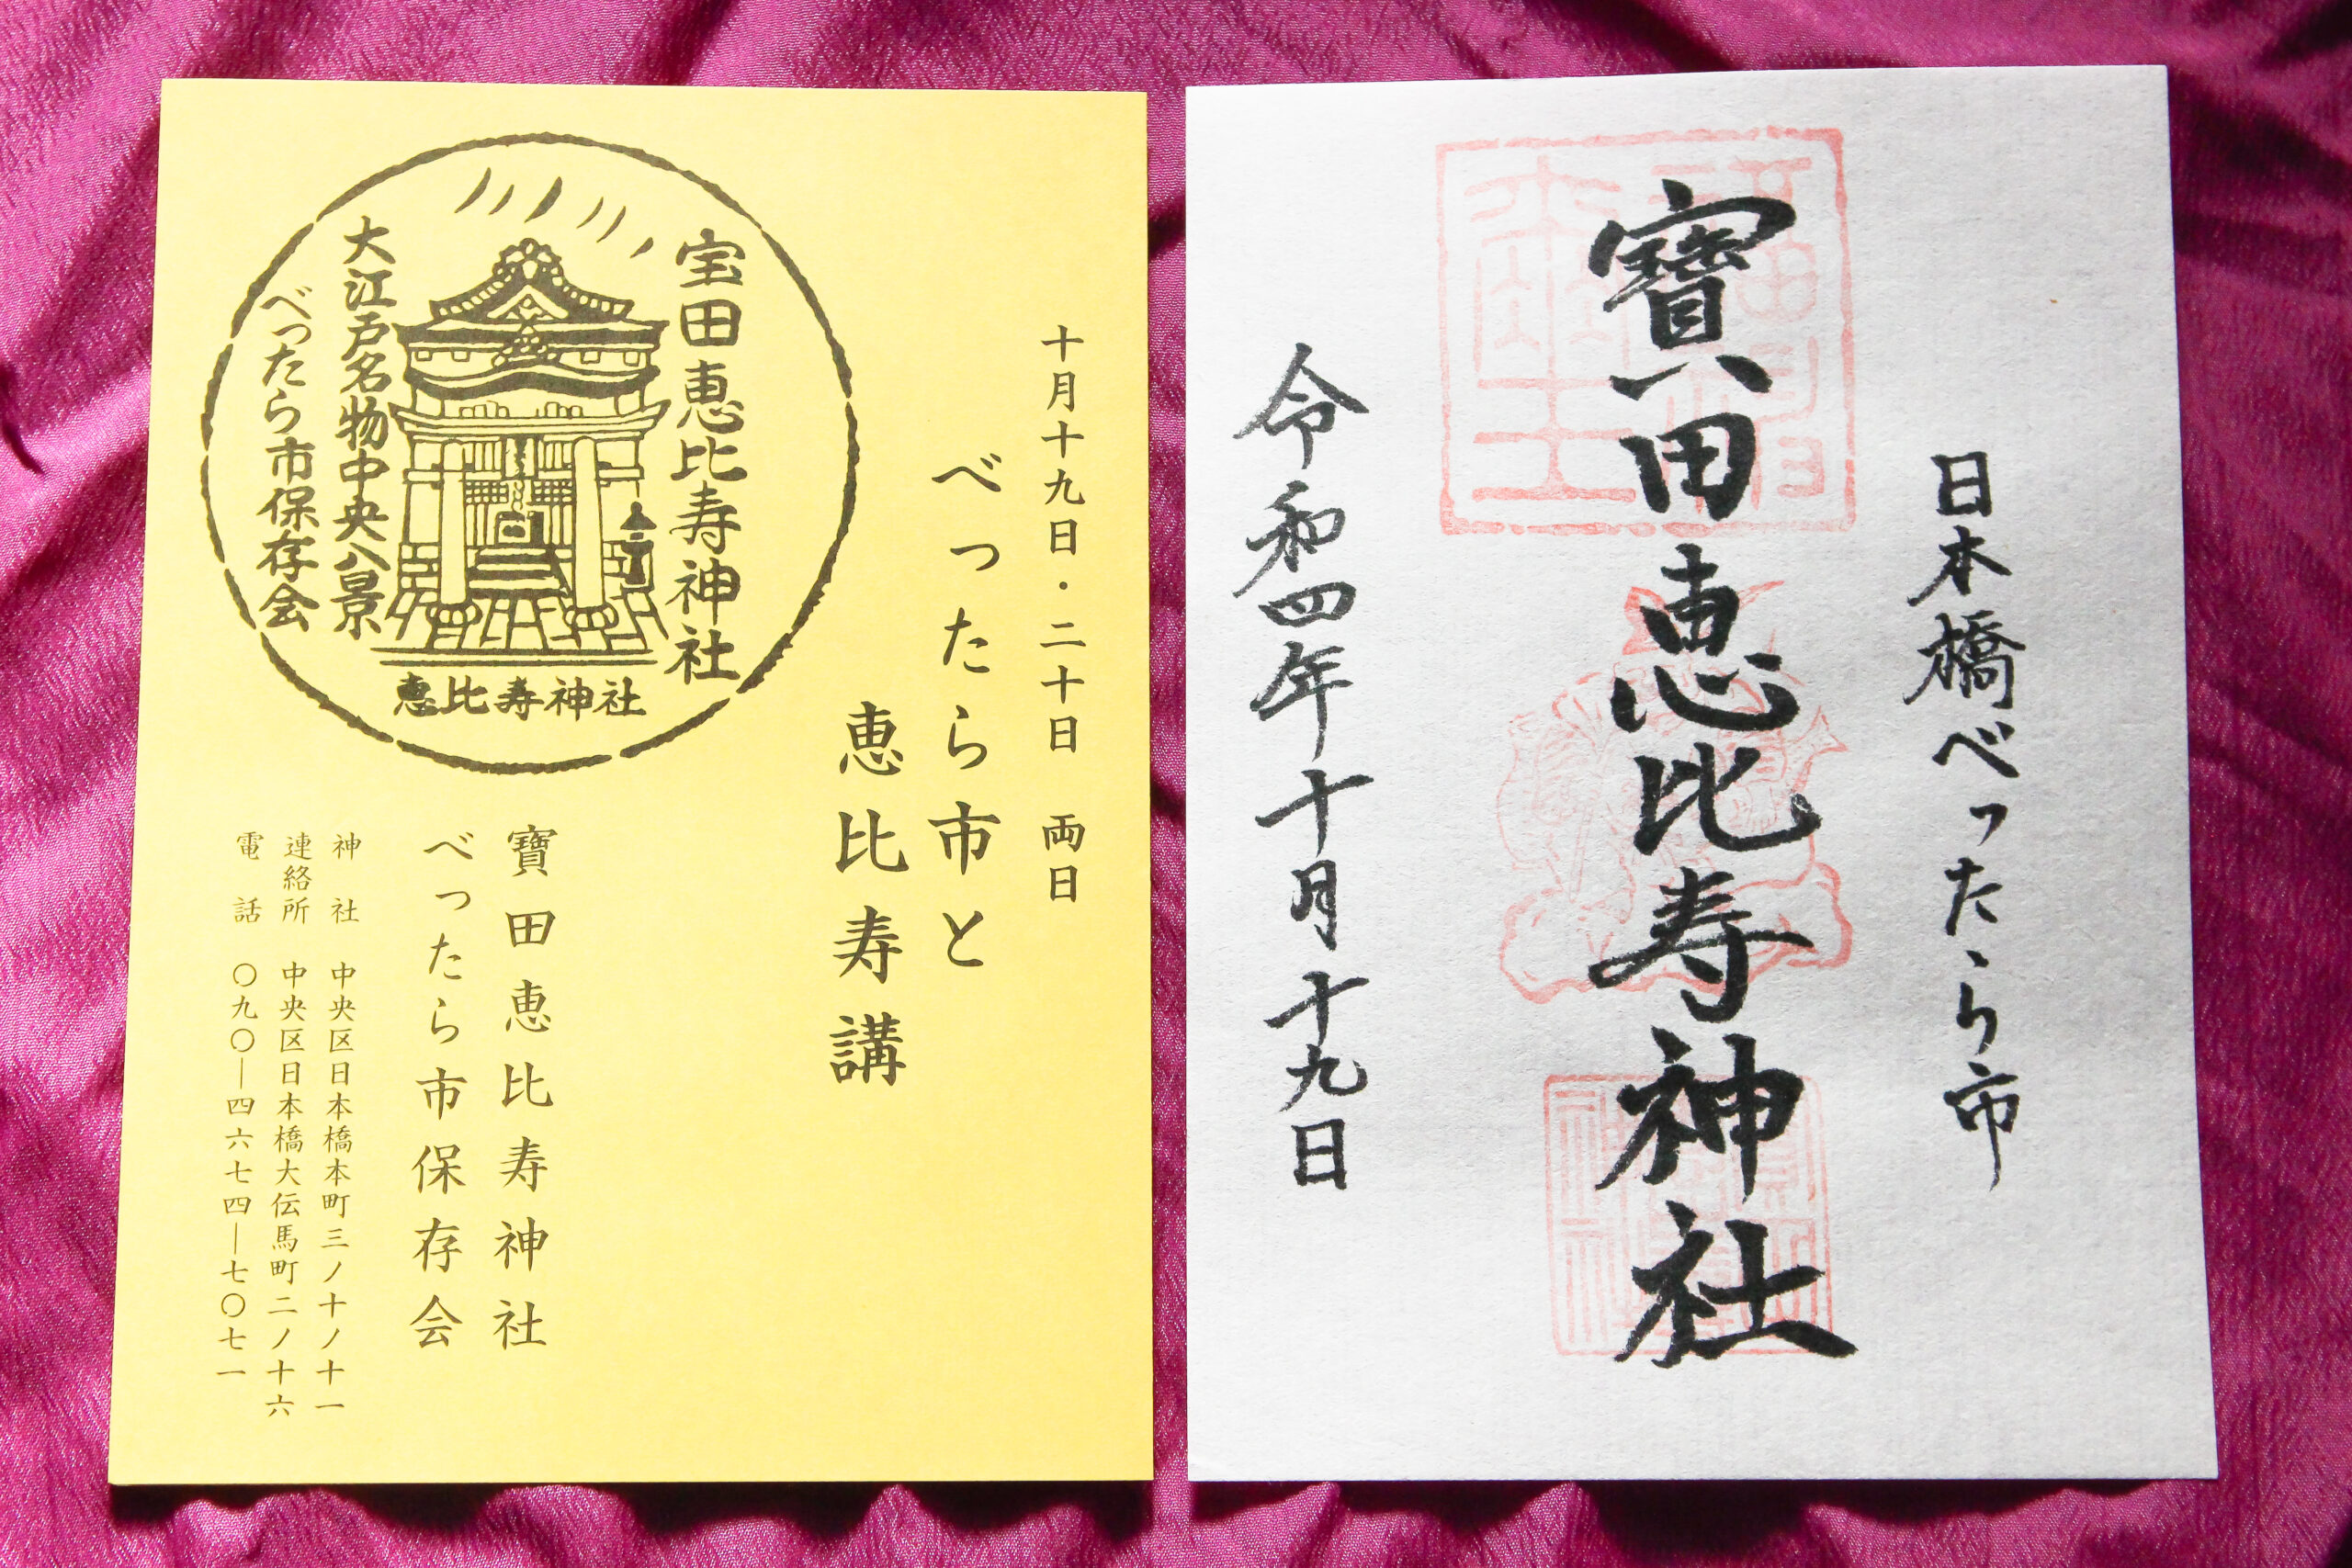 日本橋べったら市
寶田恵比寿神社
令和四年十月十九日
十月十九日・二十日 両日
べったら市と
恵比寿講
宝田恵比寿神社
大江戸名物中央八景
べったら市保存会
恵比寿神社
寶田恵比寿神社
べったら市保存会
神社 中央区日本橋本町三ノ十ノ十一
連絡所 中央区日本橋大伝馬町二ノ十六
電話 〇九〇―四六七四―七〇七一